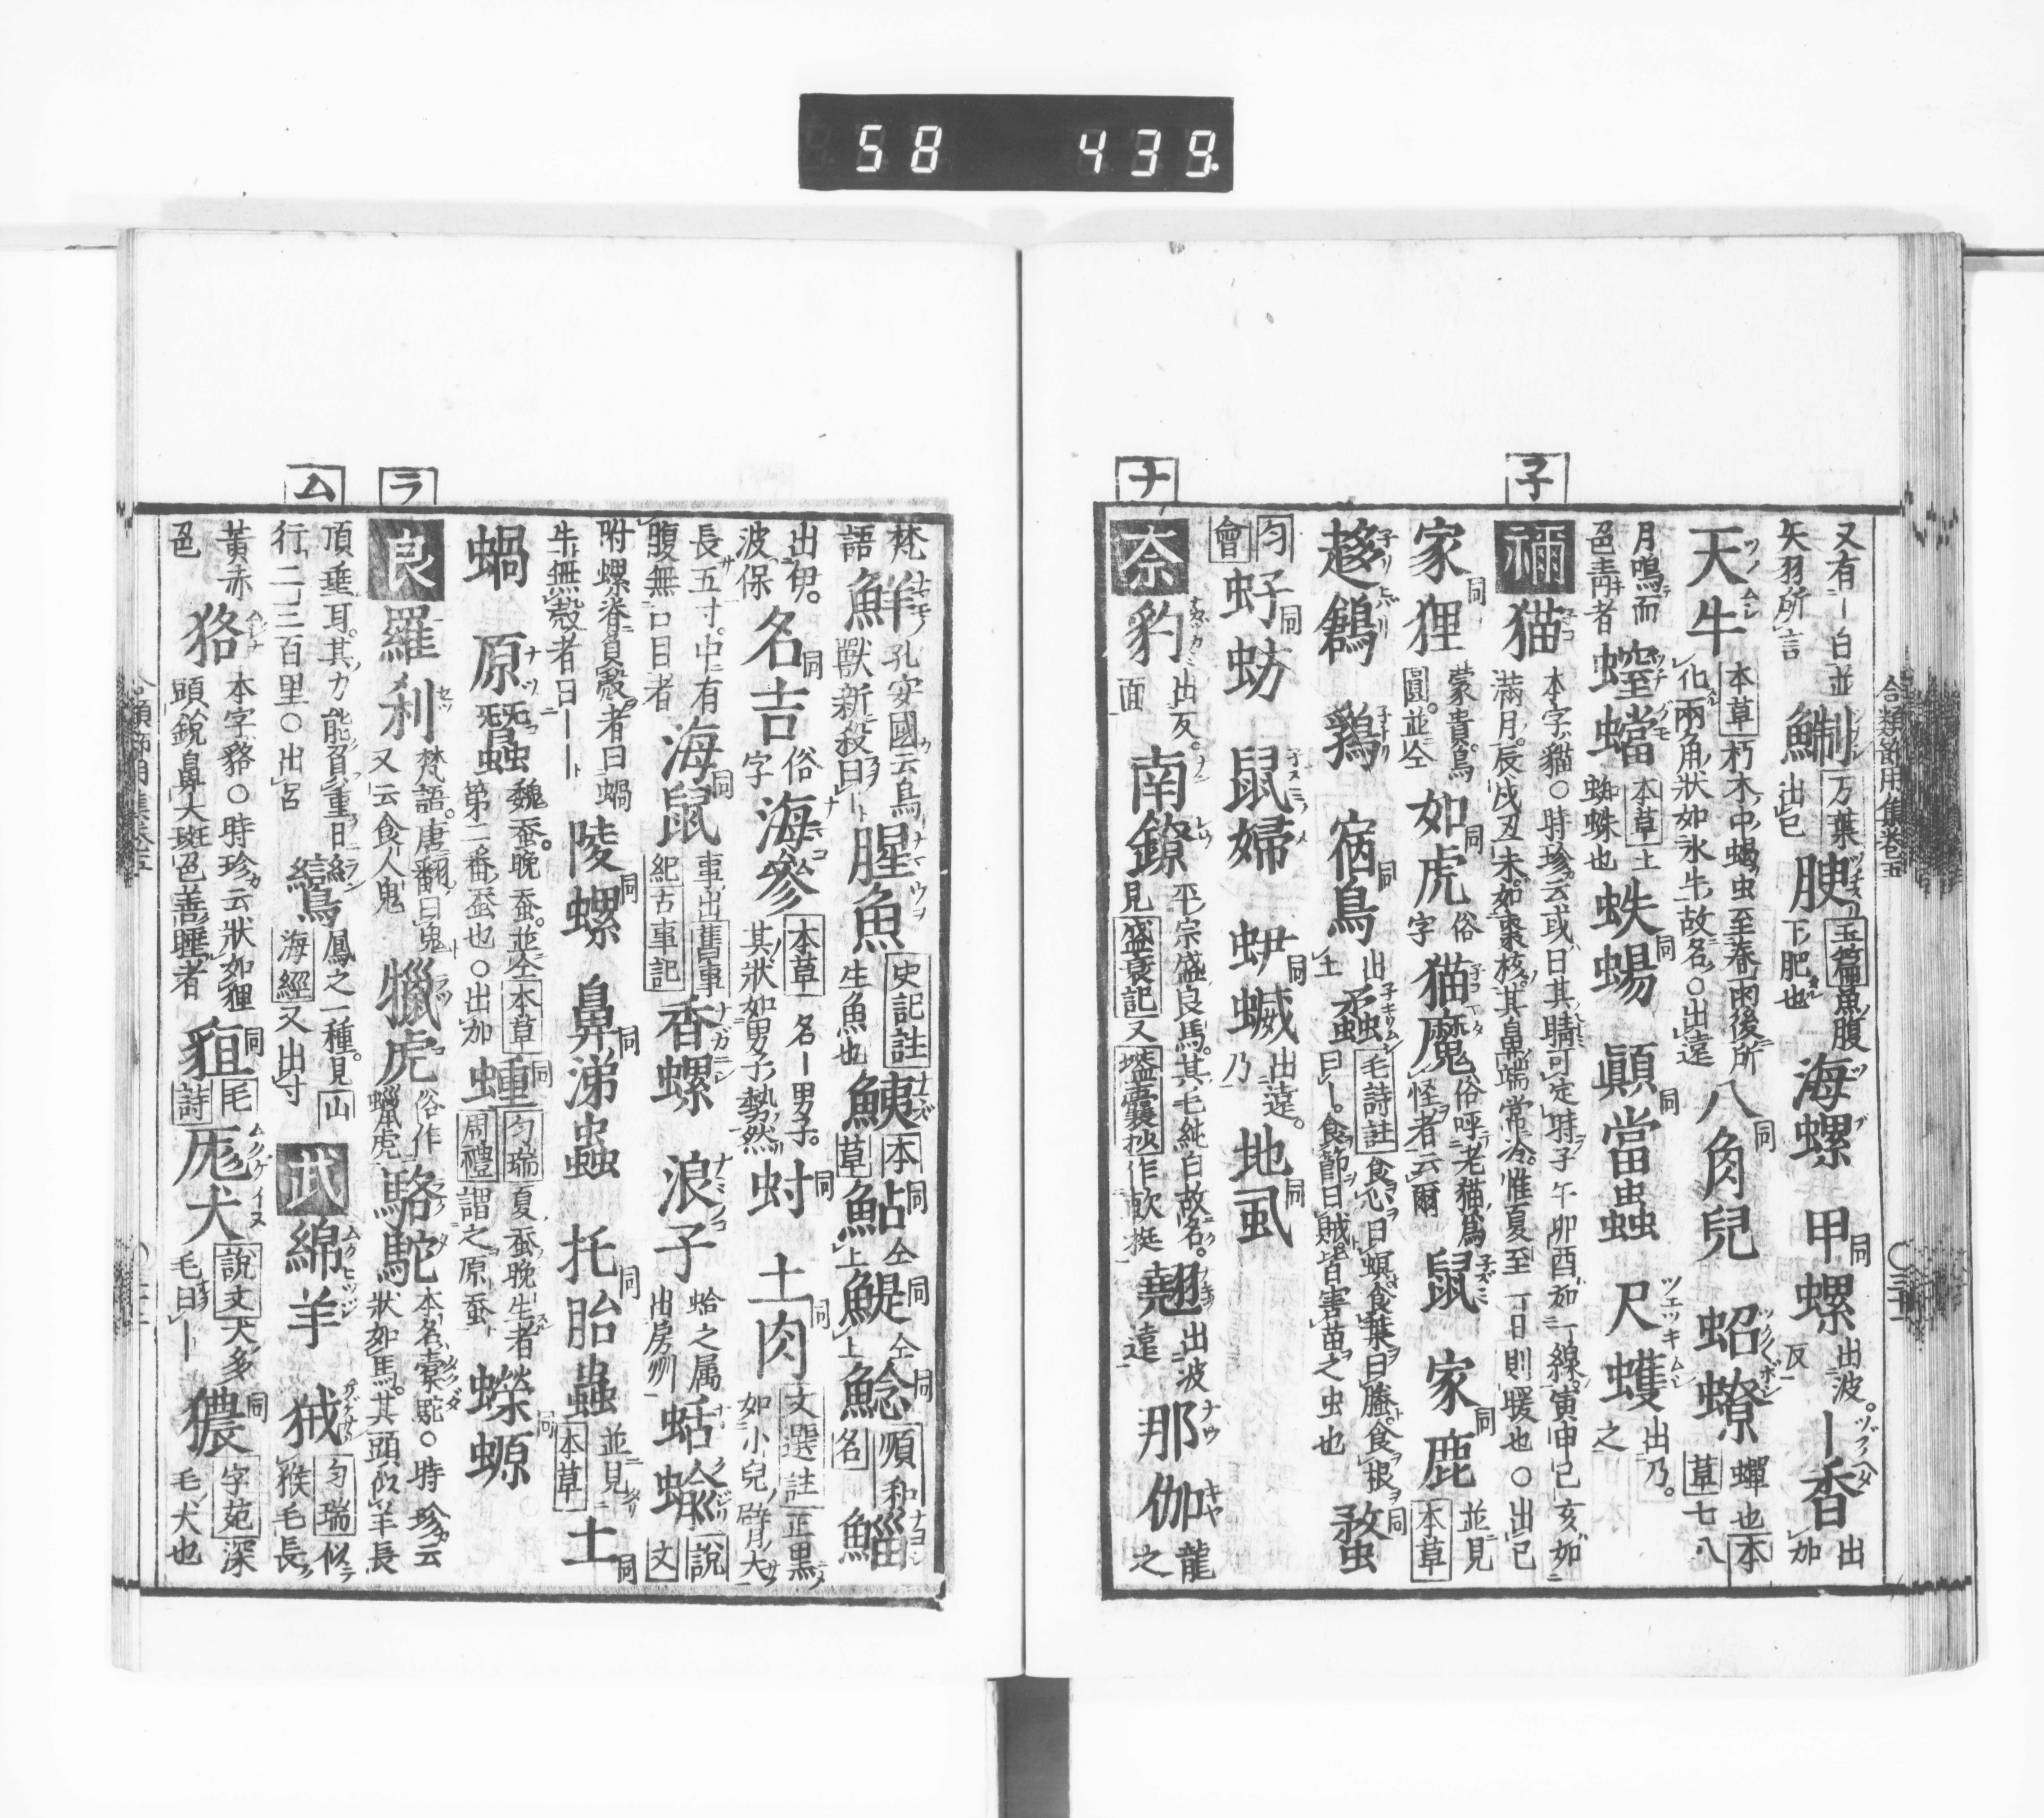 58 439
合類節用集卷五
子
ナ
又有ー白並矢羽所言 鯯 万葉出巳 腴 玉篇魚腹下肥也 海螺 甲螺 同 出波ー反 ー香 出加
天牛 本草朽木中蝎虫至春雨後所化兩角狀如水牛故名○出遠 八角兒 同 蛁蟟 蟬也本草七八
月鳴而色青者 蛭蟷 本草土蜘蛛也 蛈蝪 同 顚當蟲 同 尺蠖 出乃之
禰 猫 本字貓○時珍云或曰其睛可定時子午卯酉如一線寅申巳亥如滿月辰戌丑未如棗核其鼻端常冷惟夏至一日則暖也○出巳
家狸 同 蒙貴烏圓並仝 如虎 同 俗字 猫魔 俗呼老猫爲怪者云爾 鼠 家鹿 同 並見本草
鶏 宿鳥 同 出土 蟊 毛詩註食心曰螟食葉曰螣食根曰ー食節曰賊皆害苗之虫也 蝥 同
匀會 虸蚄 同 鼠婦 蛜蝛 同 出遠乃 地虱 同
奈 豹 出反面 南鐐 平宗盛良馬其毛純白故名見盛衰記又壒囊抄作軟挺 翹 出波遠 那伽 龍之
ラ
ム
梵語 鮮 孔安國云鳥獸新殺曰ー 腥魚 史記註生魚也 鮧 本草 鮎 同 仝上 鯷 同 仝上 鯰 同 順和名 鯔
出伊波保 名吉 同 俗字 海參 本草名ー男子其狀如男子勢然 蚪 同 土肉 同 文選註正黑如小兒臂大
長五寸中有腹無口目者 海鼠 同 事出舊事紀古事記 香螺 浪子 蛤之属出房州 蛞蝓 說文
附螺脊負殼者曰蝸牛無殼者曰ーー 陵螺 同 鼻涕蟲 同 托胎蟲 同 並見本草 土 同
蝸 原蠶 魏蚕晩蚕並仝本草第二番蚕也○出加 蝩 同 匀瑞夏蚕晩生者周禮謂之原蚕 蠑螈 同
良 羅刹 梵語唐翻曰鬼又云食人鬼 獵虎 俗作蠟虎 駱駝 本名橐駝○時珍云狀如馬其頭似羊長
項垂耳其力能負重日行二三百里○出呂 鸞 鳳之一種見山海經又出寸 武 綿羊 狨 匀瑞似猴毛長
黃赤色 狢 本字貉○時珍云狀如狸頭銳鼻大斑色善睡者 貆 同 毛詩 尨犬 說文犬多毛曰ー 獳 同 字苑深毛犬也